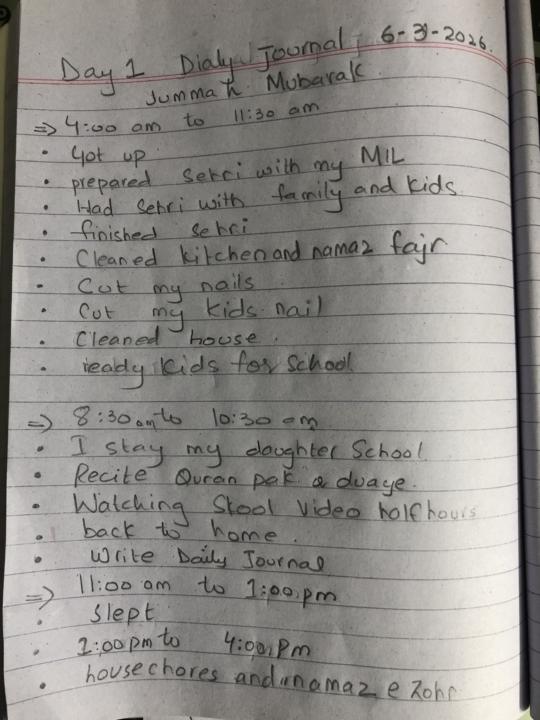 Day 1 Dialy Journal, 6-3-2026.
Jummah Mubarak
=> 4:00 am to 11:30 am
• Got up
• prepared Sehri with my MIL
• Had Sehri with family and kids
• finished sehri
• Cleaned kitchen and namaz fajr
• Cut my nails
• Cut my kids nail
• Cleaned house.
• ready kids for School
=> 8:30 am to 10:30 am
• I stay my daughter School
• Recite Quran pak & duaye.
• Watching Skool Video half hours
• back to home.
• Write Daily Journal
=> 11:00 am to 1:00.pm
• Slept
• 1:00 pm to 4:00.Pm
• house chores and namaz e Zohr